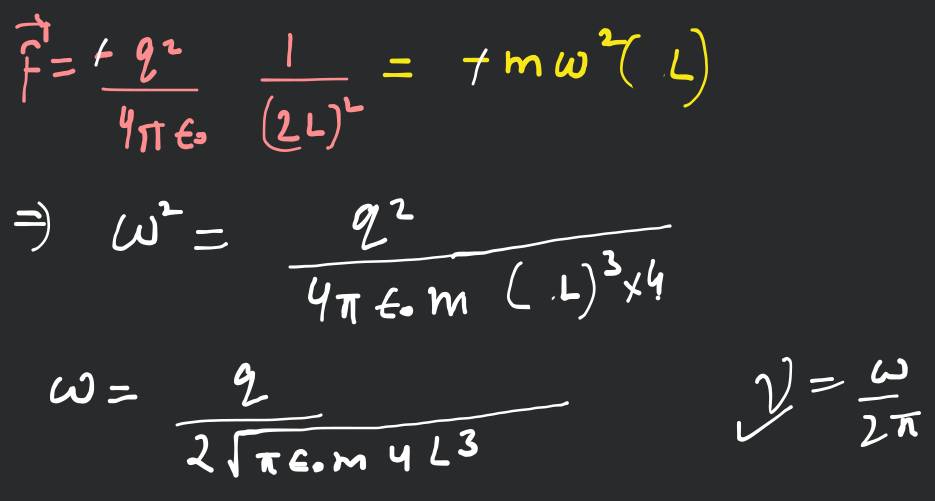 F⃗ = + q² / 4π ε₀ 1 / (2L)² = + m ω² ( L)
⇒ ω² = q² / 4π ε₀ m ( .L)³ × 4
ω = q / 2 √π ε₀ m 4 L³ ν = ω / 2π